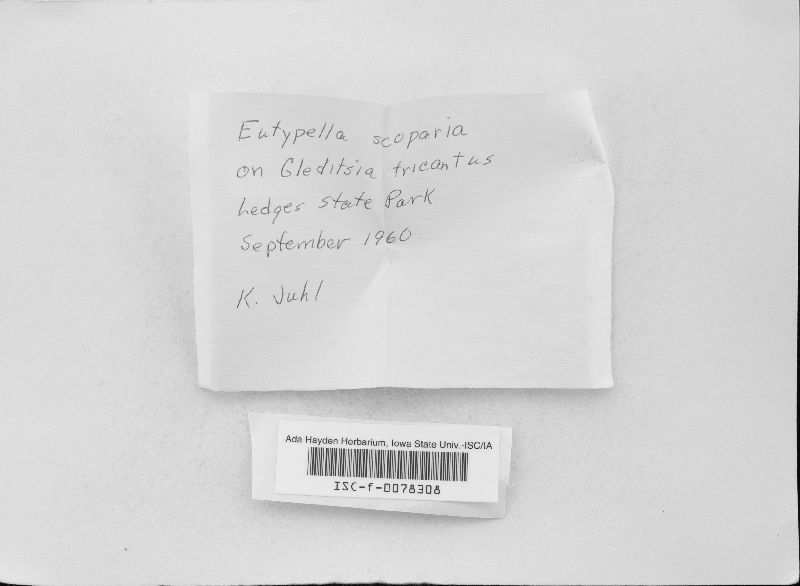 Eutypella scoparia
on Gleditsia tricantus
Ledges State Park
September 1960
K. Juhl
Ada Hayden Herbarium, Iowa State Univ.-ISC/IA
ISC-f-0078308